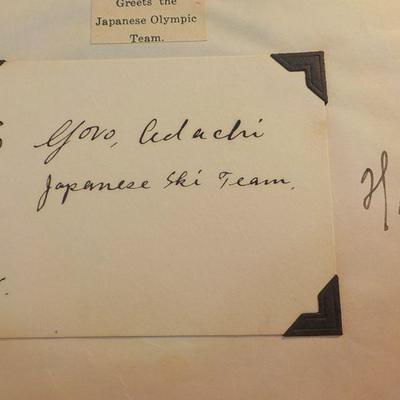 Greets the
Japanese Olympic
Team.
Goro, Adachi
Japanese Ski Team.
H